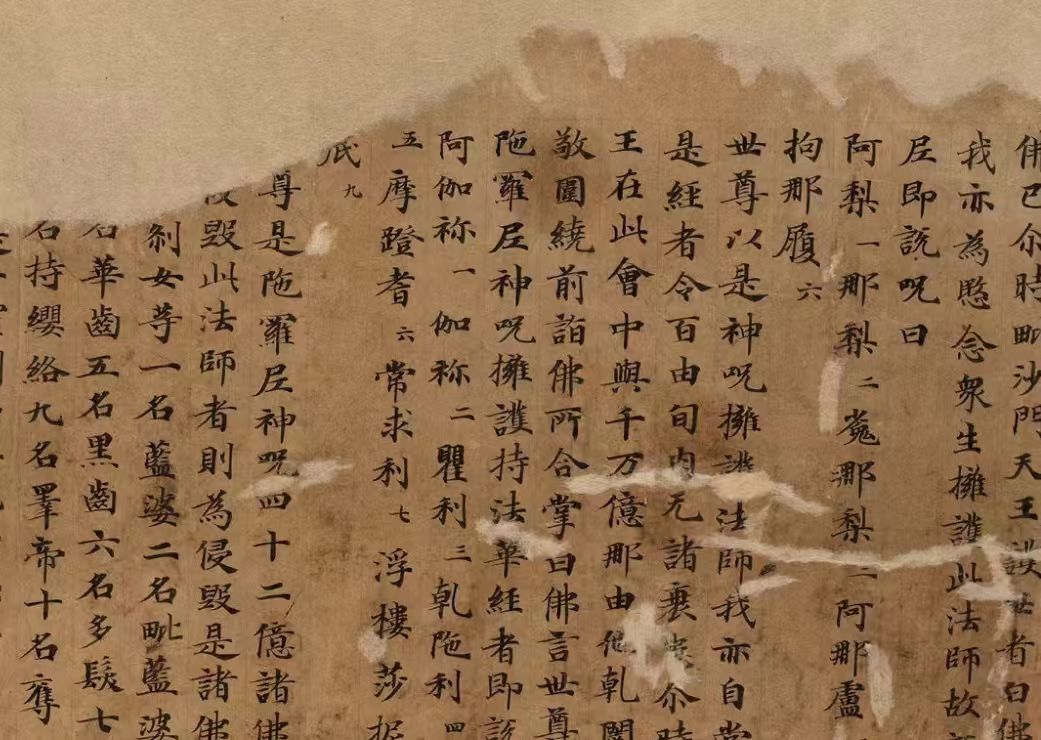 佛已尒時毗沙門天王護世者白佛
我亦為愍念衆生擁護此法師故
𡰱即說呪曰
阿梨一那梨二㝹那梨三阿那盧
拘那履六
世尊以是神呪擁護法師我亦自當
是經者令百由旬内无諸衰患尒時
王在此會中與千万億那由他乹闥
敬圍繞前詣佛所合掌白佛言世尊
陁羅𡰱神呪擁護持法華經者即說
阿伽祢一伽祢二瞿利三乹陁利四
五摩蹬耆六常求利七浮樓莎抳
底九
尊是陁羅𡰱神呪四十二億諸佛
毀此法師者則為侵毀是諸佛
刹女等一名藍婆二名毗藍婆
名華齒五名黑齒六名多髮七
名持纓絡九名睪帝十名奪